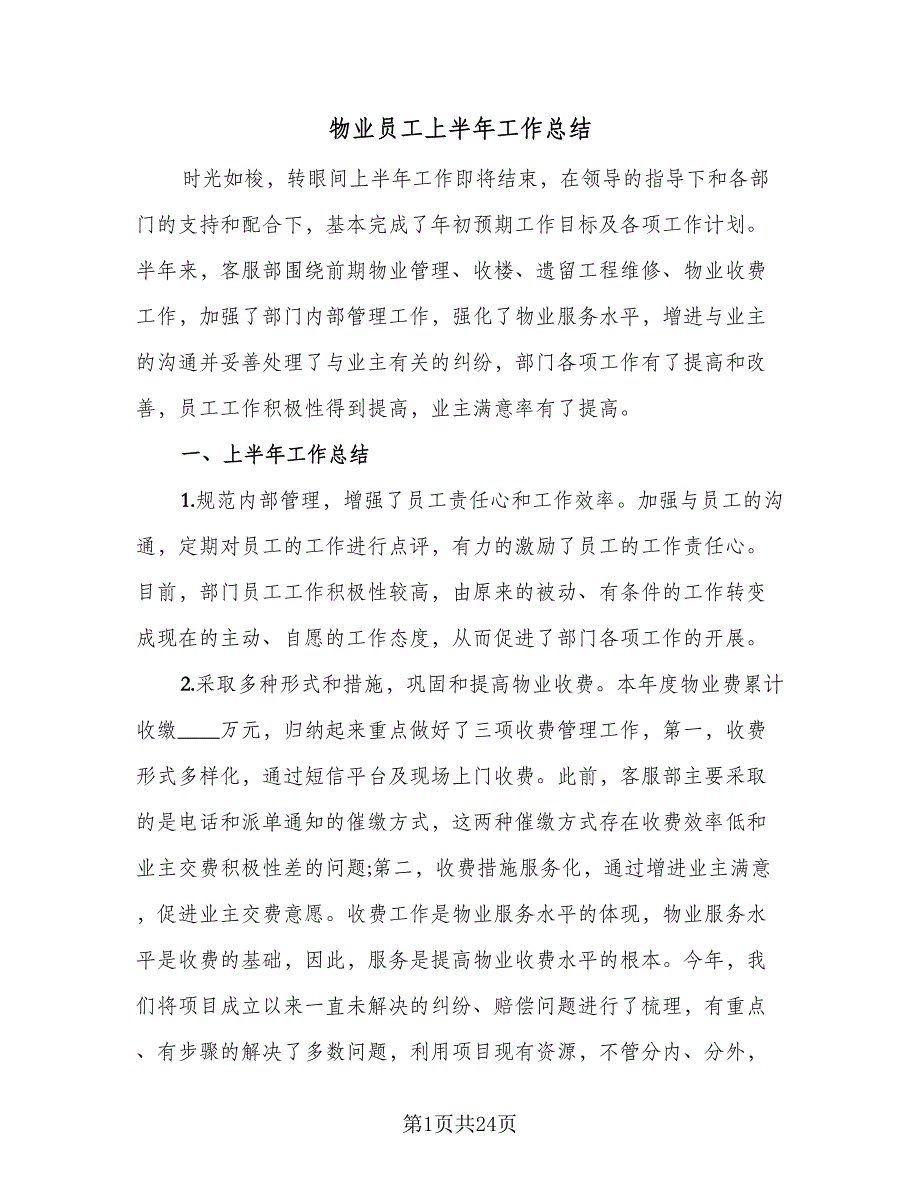 物业员工上半年工作总结
时光如梭，转眼间上半年工作即将结束，在领导的指导下和各部
门的支持和配合下，基本完成了年初预期工作目标及各项工作计划。
半年来，客服部围绕前期物业管理、收楼、遗留工程维修、物业收费
工作，加强了部门内部管理工作，强化了物业服务水平，增进与业主
的沟通并妥善处理了与业主有关的纠纷，部门各项工作有了提高和改
善，员工工作积极性得到提高，业主满意率有了提高。
一、上半年工作总结
1.规范内部管理，增强了员工责任心和工作效率。加强与员工的沟
通，定期对员工的工作进行点评，有力的激励了员工的工作责任心。
目前，部门员工工作积极性较高，由原来的被动、有条件的工作转变
成现在的主动、自愿的工作态度，从而促进了部门各项工作的开展。
2.采取多种形式和措施，巩固和提高物业收费。本年度物业费累计
收缴____万元，归纳起来重点做好了三项收费管理工作，第一，收费
形式多样化，通过短信平台及现场上门收费。此前，客服部主要采取
的是电话和派单通知的催缴方式，这两种催缴方式存在收费效率低和
业主交费积极性差的问题;第二，收费措施服务化，通过增进业主满意
，促进业主交费意愿。收费工作是物业服务水平的体现，物业服务水
平是收费的基础，因此，服务是提高物业收费水平的根本。今年，我
们将项目成立以来一直未解决的纠纷、赔偿问题进行了梳理，有重点
、有步骤的解决了多数问题，利用项目现有资源，不管分内、分外，
第1页共24页